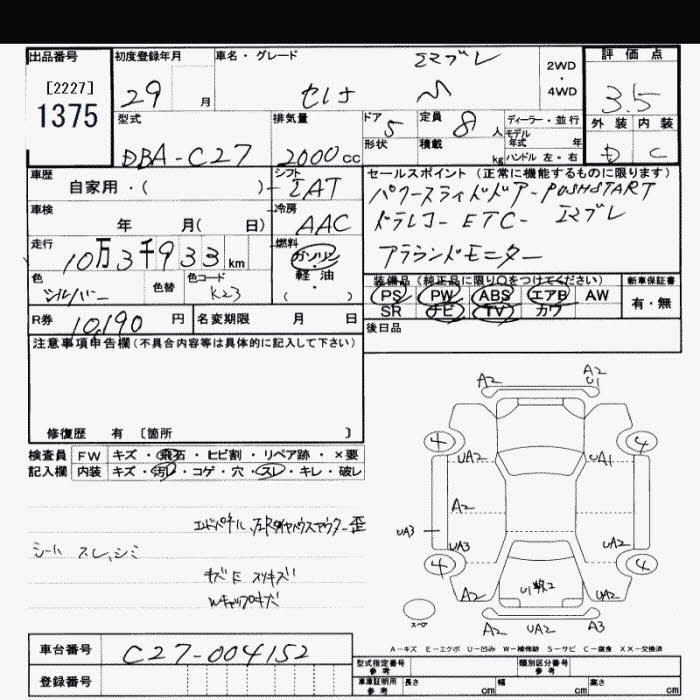 出品番号 初度登録年月 車名・グレード エマブレ 2WD・4WD 評価点
[2227]
1375 29 月 セレナ 3.5
型式 排気量 ドア 5 定員 8 人 ディーラー・並行 外装 内装
DBA-C27 2000 cc 形状 積載 kg モデル年式 年 ハンドル 左・右 D C
車歴 シフト セールスポイント(正常に機能するものに限ります)
自家用・( ) IAT パワースライドドアー PUSHSTART
車検 冷房 ドラレコー ETC- エマブレ
年 月( 日) AAC
走行 燃料 アラウンドモニター
10万3千933 km ガソリン・軽油・( )
色 色替 色コード 装備品(純正品に限り○をつけてください) 新車保証書
シルバー K23 PS PW ABS エアB AW 有・無
SR ナビ TV カワ
R券 10,190 円 名変期限 月 日 後日品
注意事項申告欄(不具合内容等は具体的に記入して下さい)
修復歴 有 [箇所 ]
検査員 FW キズ・飛石・ヒビ割・リペア跡・×要
記入欄 内装 キズ・汚レ・コゲ・穴・スレ・キレ・破レ
シート スレ,シミ
キズE スリキズ
Wキャップキズ
A2 A2 U1
4 4
UA2 UA1
A2
UA3 UA3 UA2
4 4
A2 U1数2 UA2
スペア A2 UA2 A3
A-キズ E-エクボ U-凹み W-補修跡 S-サビ C-腐食 XX-交換済
車台番号 C27-004152
登録番号
型式指定番号 参考 類別区分番号 参考
車庫証明用 参考 長さ cm 幅 cm 高さ cm